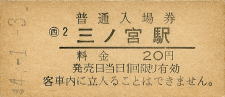 普通入場券
㊄2 三ノ宮駅
料金 20円
発売日当日1回限り有効
客車内に立入ることはできません。